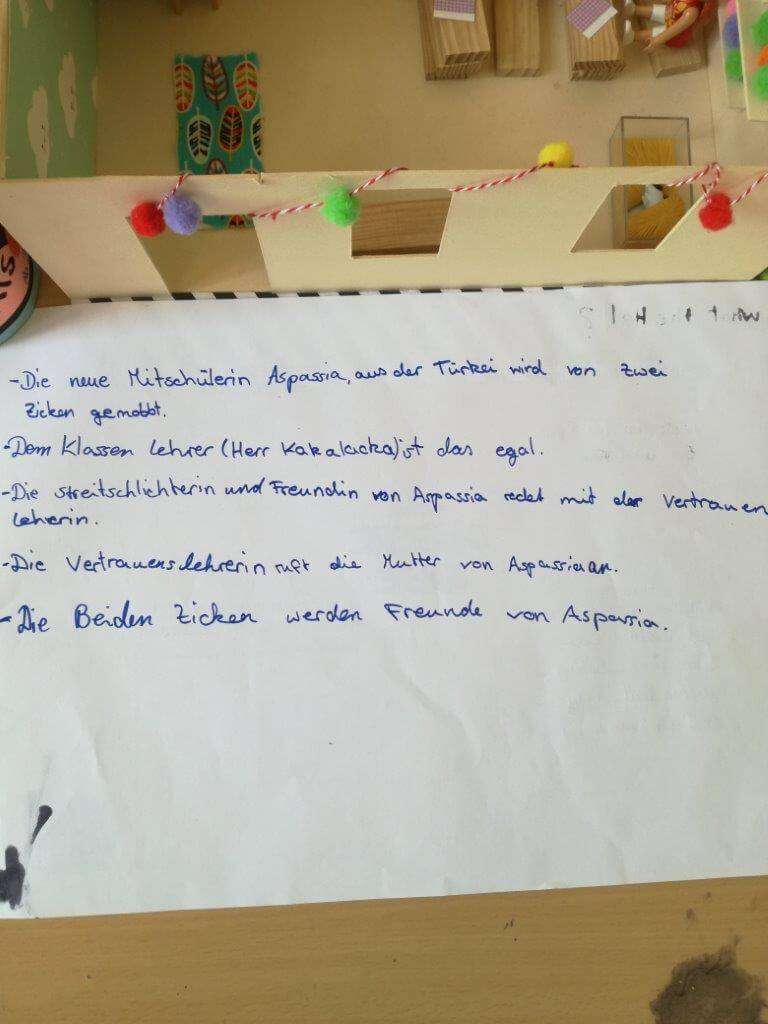 - Die neue Mitschülerin Aspassia, aus der Türkei wird von zwei
Zicken gemobbt.
- Dem Klassen lehrer (Herr Kakalacka) ist das egal.
- Die Streitschlichterin und Freundin von Aspassia redet mit der Vertrauen
lehrerin.
- Die Vertrauenslehrerin ruft die Mutter von Aspassia an.
- Die Beiden Zicken werden Freunde von Aspassia.